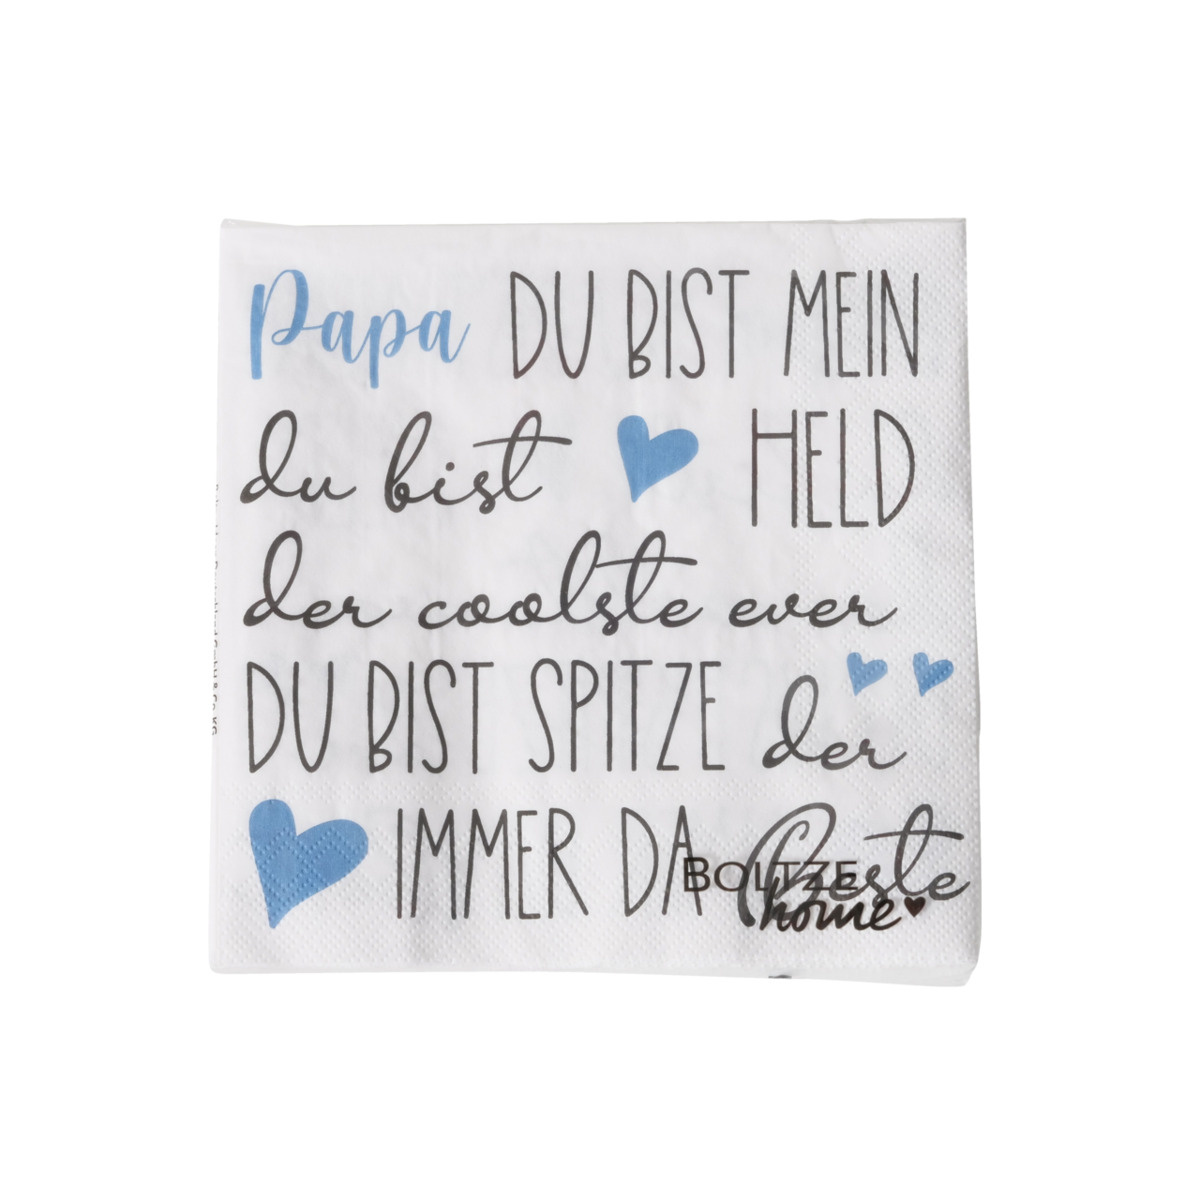 Papa DU BIST MEIN
du bist HELD
der coolste ever
DU BIST SPITZE der
IMMER DA Beste
BOLTZE
home